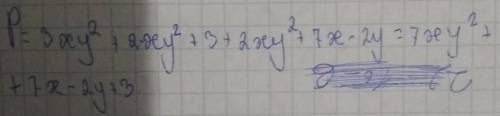 P = 3xy² + 2xy² + 3 + 2xy² + 7x - 2y = 7xy² +
+ 7x - 2y + 3